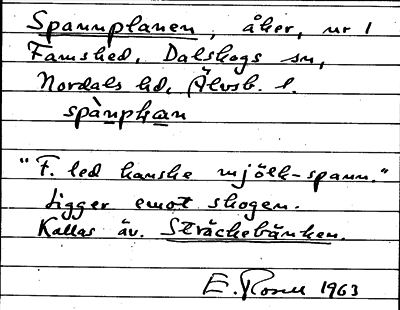 Spannplanen, åker, nr 1
Famshed, Dalskogs sn,
Nordals hd, Älvsb. l.
spànpḷan
"F. led kanske mjölk-spann."
Ligger emot skogen.
Kallas äv. Sträckebänken.
E. Rosell 1963